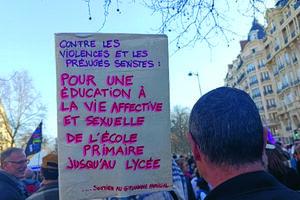 CONTRE LES
VIOLENCES ET LES
PRÉJUGÉS SEXISTES :
POUR UNE
ÉDUCATION À
LA VIE AFFECTIVE
ET SEXUELLE
DE L'ÉCOLE
PRIMAIRE
JUSQU'AU LYCÉE
....SOUTIEN AU PLANNING FAMILIAL